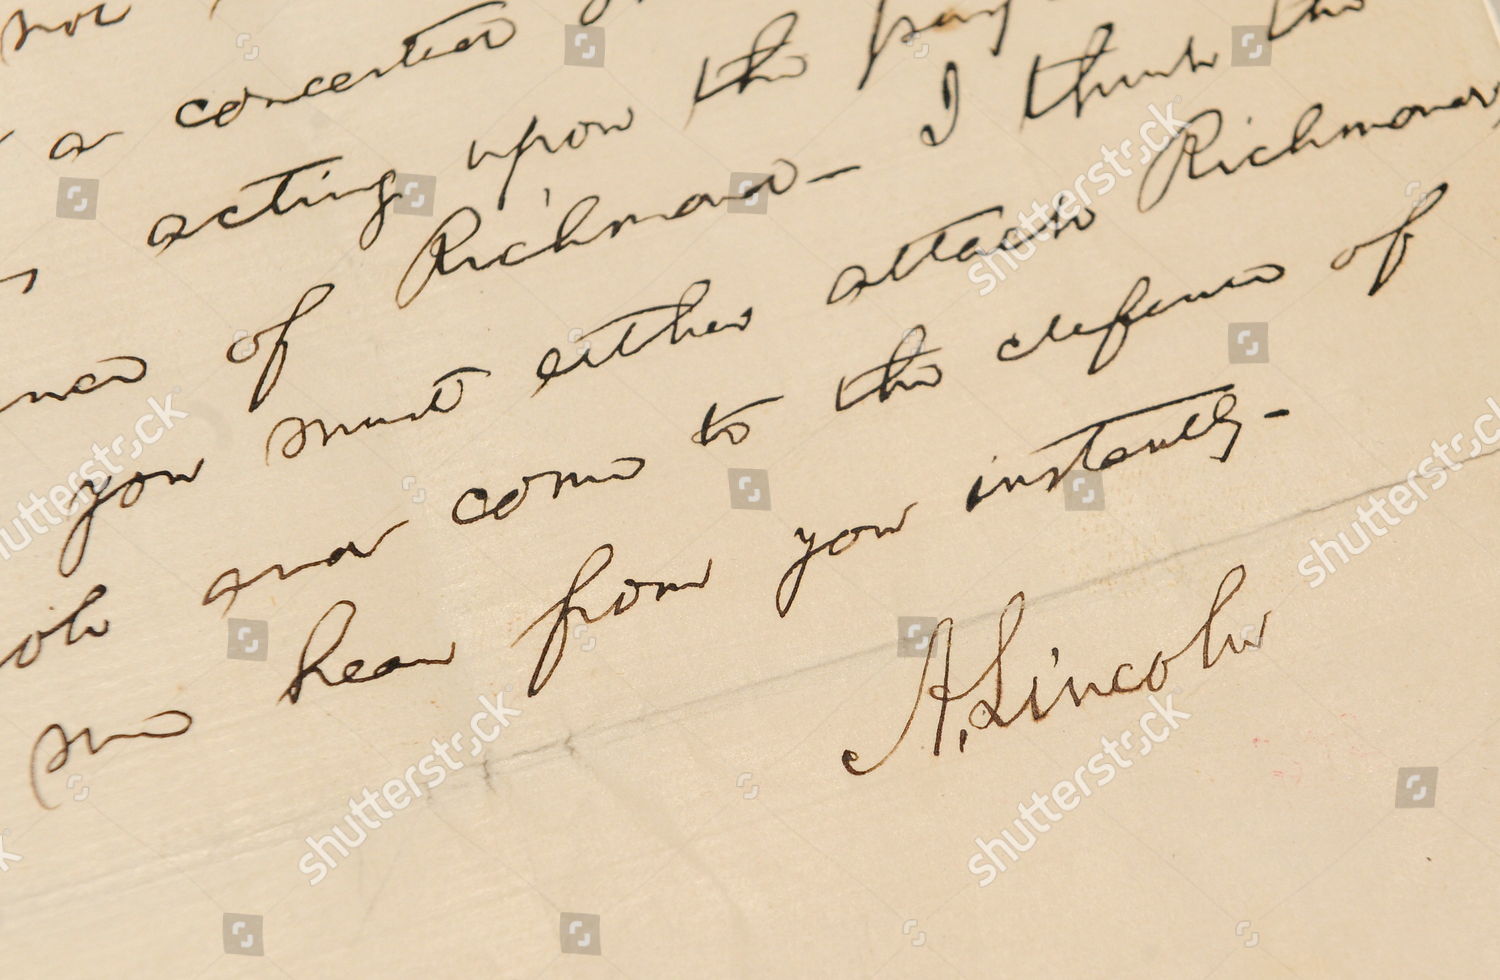 not
a concerted
acting upon the
of Richmond— I think the
you must either attack Richmond
and come to the defence of
me hear from you instantly—
A. Lincoln
shutterstock
shutterstock
shutterstock
shutterstock
shutterstock
shutterstock